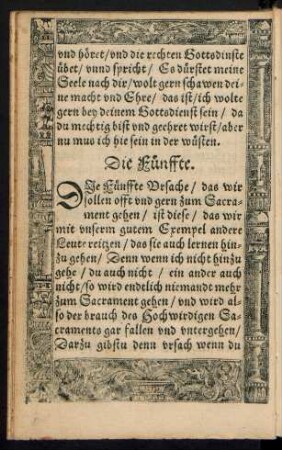 vnd höret/vnd die rechten Gottsdinste
übet/ vnnd spricht/ Es dürstet meine
Seele nach dir/wolt gern schawen dei-
ne macht vnd Ehre/ das ist/ich wolte
gern bey deinem Gottsdienst sein/ da
du mechtig bist vnd geehret wirst/aber
nu mus ich hie sein in der wüsten.
Die Fünffte.
DIe Fünffte Vrsache/ das wir
sollen offt vnd gern zum Sacra-
ment gehen/ ist diese/ das wir
mit vnserm gutem Exempel andere
Leut reitzen/das sie auch lernen hin-
zu gehen/ Denn wenn ich nicht hinzu
gehe/ du auch nicht/ ein ander auch
nicht/so wird endtlich niemandt mehr
zum Sacrament gehen/ vnd wird al-
so der brauch des Hochwirdigen Sa-
craments gar fallen vnd vntergehen/
Darzu gibstu denn vrsach wenn du